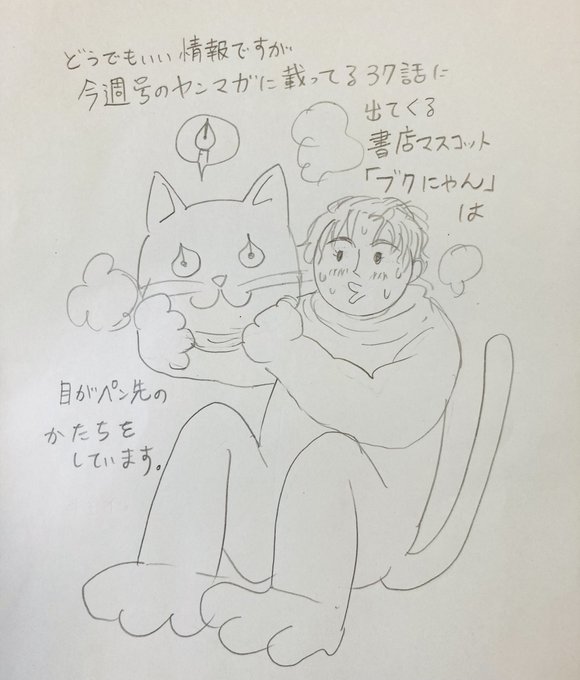 どうでもいい情報ですが
今週号のヤンマガに載ってる37話に
出てくる
書店マスコット
「ブクにゃん」
は
目がペン先の
かたちを
しています。